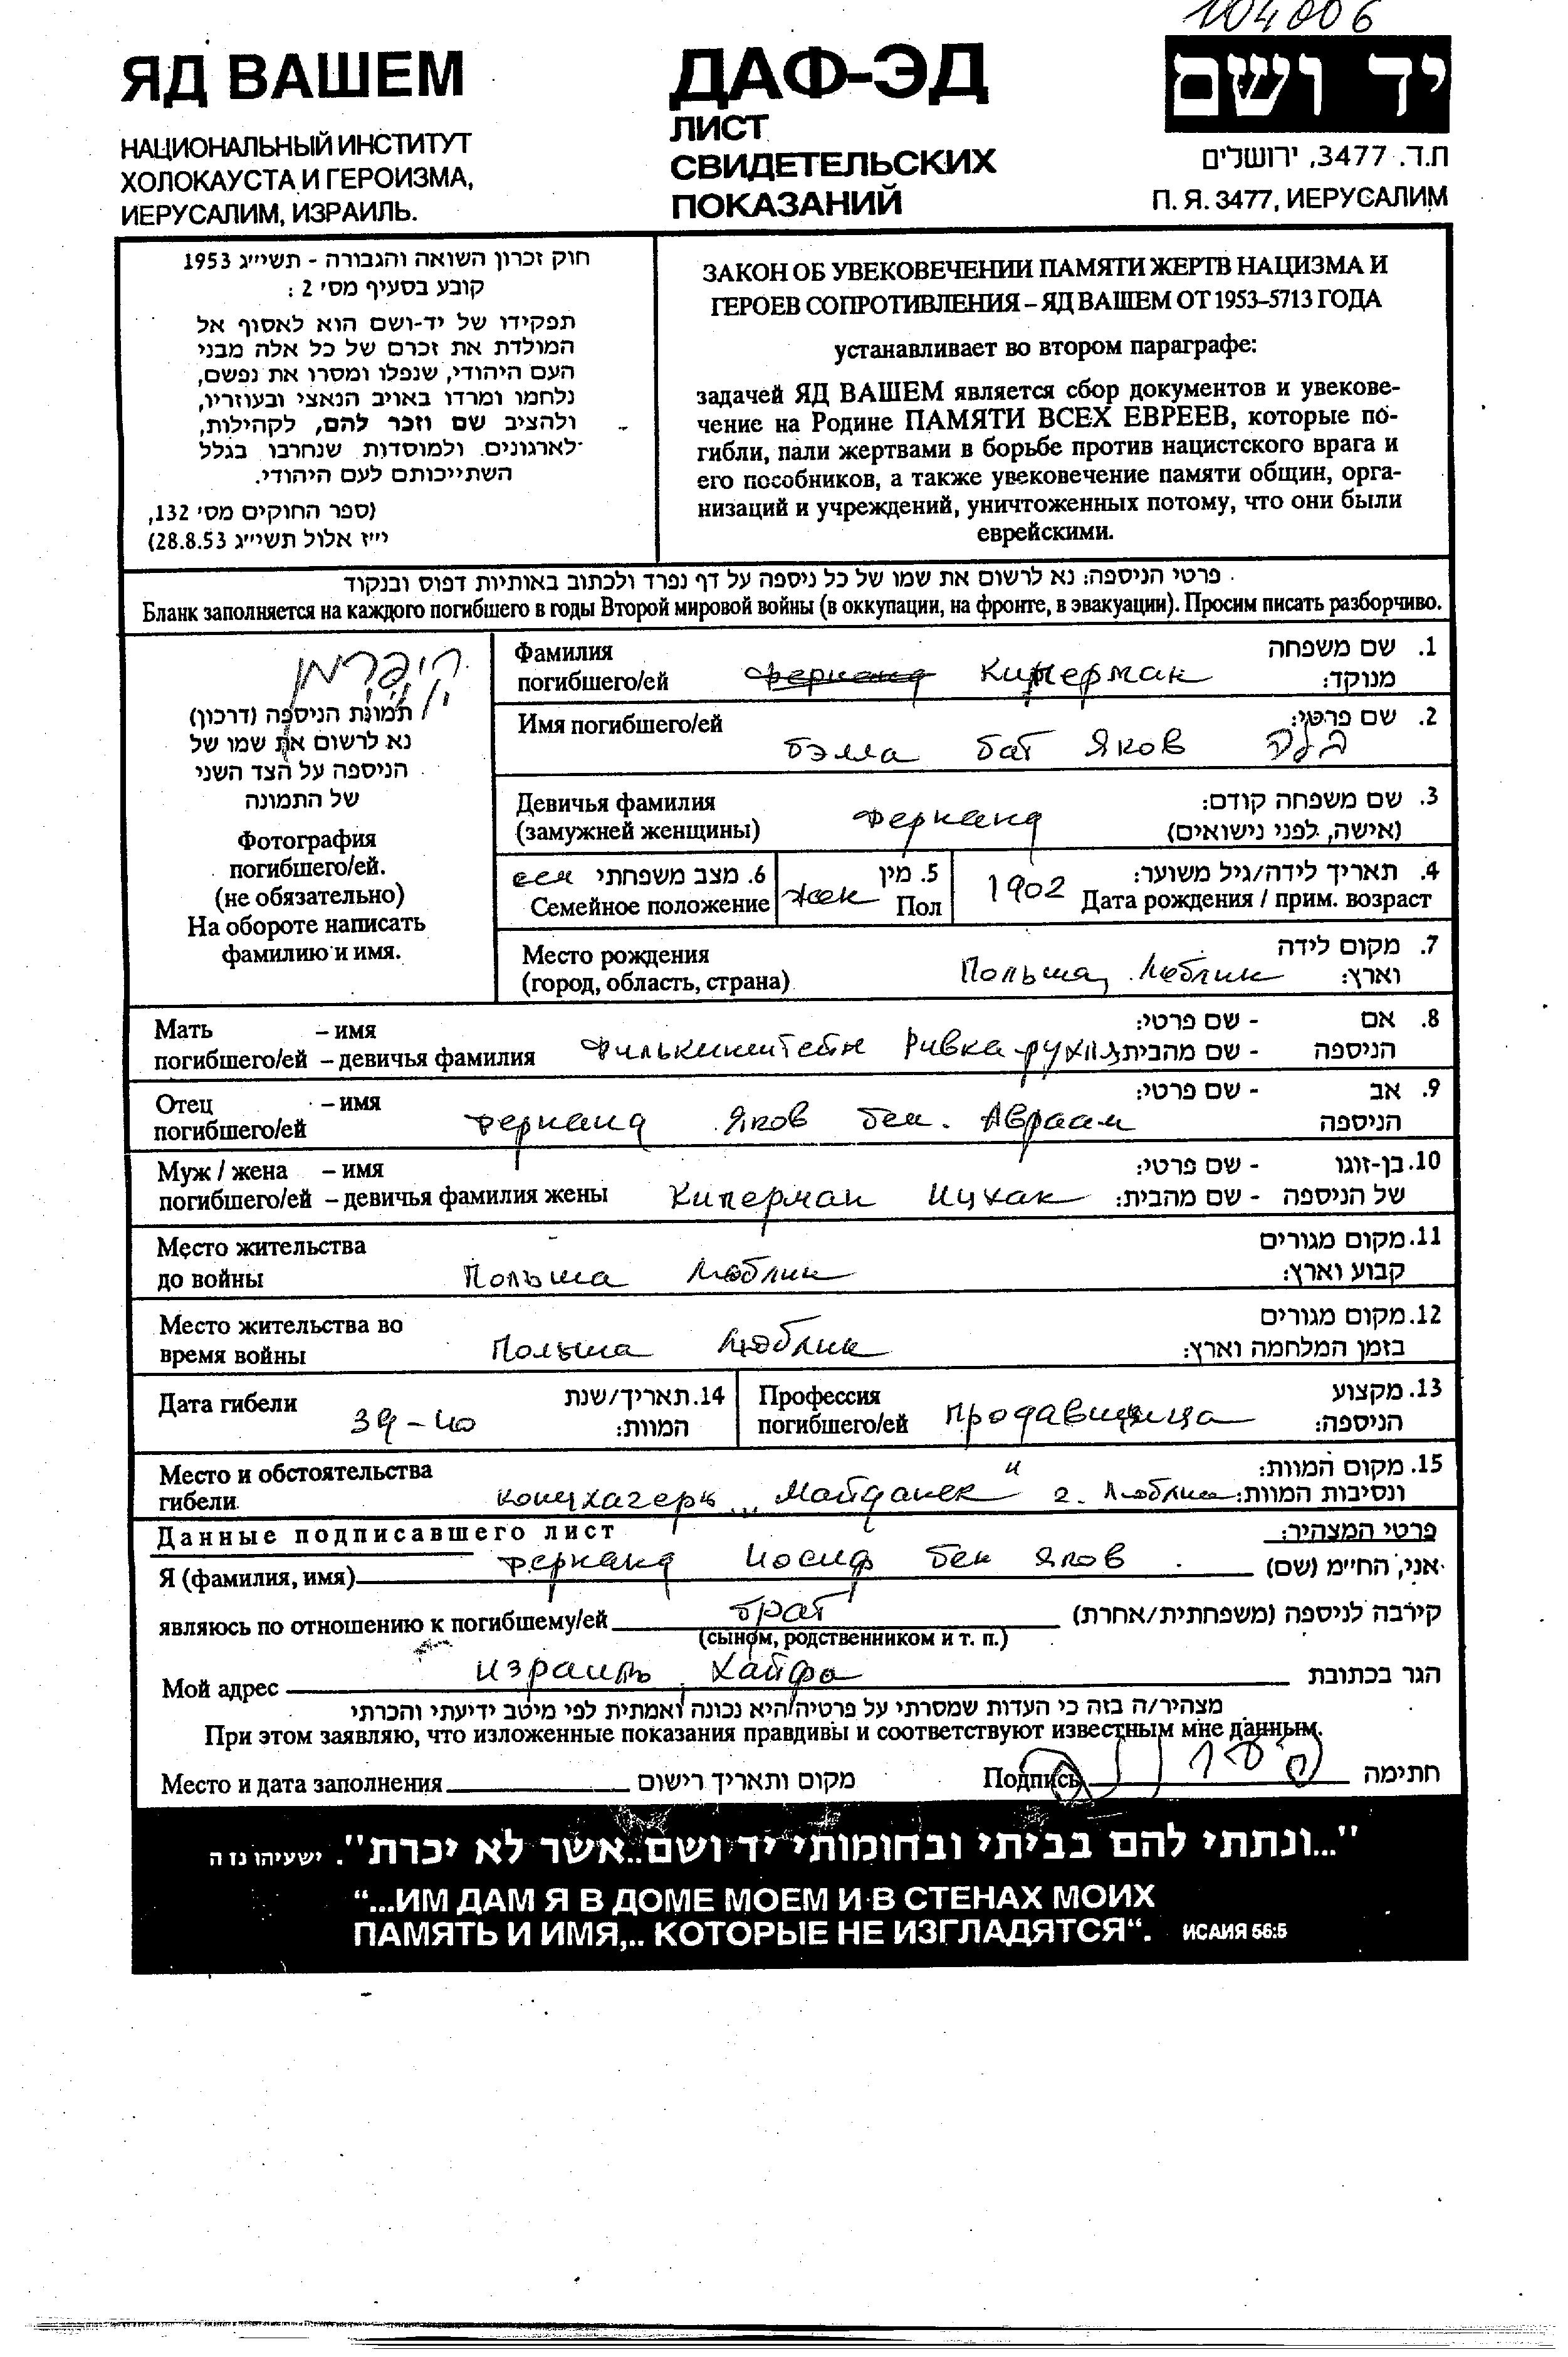 104006
ЯД ВАШЕМ
НАЦИОНАЛЬНЫЙ ИНСТИТУТ
ХОЛОКАУСТА И ГЕРОИЗМА,
ИЕРУСАЛИМ, ИЗРАИЛЬ.
ДАФ-ЭД
ЛИСТ
СВИДЕТЕЛЬСКИХ
ПОКАЗАНИЙ
יד ושם
ת.ד. 3477, ירושלים
П. Я. 3477, ИЕРУСАЛИМ
חוק זכרון השואה והגבורה - תשי״ג 1953
קובע בסעיף מס׳ 2 :
תפקידו של יד-ושם הוא לאסוף אל
המולדת את זכרם של כל אלה מבני
העם היהודי, שנפלו ומסרו את נפשם,
נלחמו ומרדו באויב הנאצי ובעוזריו,
ולהציב שם וזכר להם, לקהילות,
לארגונים. ולמוסדות שנחרבו בגלל
השתייכותם לעם היהודי.
(ספר החוקים מס׳ 132,
י״ז אלול תשי״ג 28.8.53)
ЗАКОН ОБ УВЕКОВЕЧЕНИИ ПАМЯТИ ЖЕРТВ НАЦИЗМА И
ГЕРОЕВ СОПРОТИВЛЕНИЯ – ЯД ВАШЕМ ОТ 1953–5713 ГОДА
устанавливает во втором параграфе:
задачей ЯД ВАШЕМ является сбор документов и увекове-
чение на Родине ПАМЯТИ ВСЕХ ЕВРЕЕВ, которые по-
гибли, пали жертвами в борьбе против нацистского врага и
его пособников, а также увековечение памяти общин, орга-
низаций и учреждений, уничтоженных потому, что они были
еврейскими.
פרטי הניספה: נא לרשום את שמו של כל ניספה על דף נפרד ולכתוב באותיות דפוס ובנקוד
Бланк заполняется на каждого погибшего в годы Второй мировой войны (в оккупации, на фронте, в эвакуации). Просим писать разборчиво.
קיפרמן
תמונת הניספה (דרכון)
נא לרשום את שמו של
הניספה על הצד השני
של התמונה
Фотография
погибшего/ей.
(не обязательно)
На обороте написать
фамилию и имя.
Фамилия 1. שם משפחה
погибшего/ей Ферканд Киперман מנוקד:
Имя погибшего/ей 2. שם פרטי:
Бэлла бат Яков בלה
Девичья фамилия 3. שם משפחה קודם:
(замужней женщины) Ферканд (אישה, לפני נישואים)
6. מצב משפחתי сем 5. מין 4. תאריך לידה/גיל משוער:
Семейное положение Пол жен 1902 Дата рождения / прим. возраст
Место рождения 7. מקום לידה
(город, область, страна) Польша, Люблин וארץ:
Мать – имя 8. אם - שם פרטי:
погибшего/ей – девичья фамилия Филькинштейн Ривка-рухля הניספה - שם מהבית:
Отец – имя 9. אב - שם פרטי:
погибшего/ей Ферканд Яков бен. Авраам הניספה
Муж / жена – имя 10. בן-זוגו - שם פרטי:
погибшего/ей – девичья фамилия жены Киперман Ицхак של הניספה - שם מהבית:
Место жительства 11. מקום מגורים
до войны Польша Люблин קבוע וארץ:
Место жительства во 12. מקום מגורים
время войны Польша Люблин בזמן המלחמה וארץ:
Дата гибели 14. תאריך/שנת Профессия 13. מקצוע
39-40 המוות: погибшего/ей продавщица הניספה:
Место и обстоятельства 15. מקום המוות:
гибели концлагерь „Майданек" г. Люблин ונסיבות המוות:
Данные подписавшего лист פרטי המצהיר:
Я (фамилия, имя) Ферканд Иосиф бен Яков אני, החי״מ (שם)
являюсь по отношению к погибшему/ей брат קירבה לניספה (משפחתית/אחרת)
(сыном, родственником и т. п.)
Мой адрес Израиль, Хайфа הגר בכתובת
מצהיר/ה בזה כי העדות שמסרתי על פרטיה היא נכונה ואמתית לפי מיטב ידיעתי והכרתי
При этом заявляю, что изложенные показания правдивы и соответствуют известным мне данным.
Место и дата заполнения מקום ותאריך רישום Подпись חתימה
"...ונתתי להם בביתי ובחומותי יד ושם..אשר לא יכרת". ישעיהו נז ה
“...ИМ ДАМ Я В ДОМЕ МОЕМ И В СТЕНАХ МОИХ
ПАМЯТЬ И ИМЯ,.. КОТОРЫЕ НЕ ИЗГЛАДЯТСЯ“. ИСАИЯ 56:5